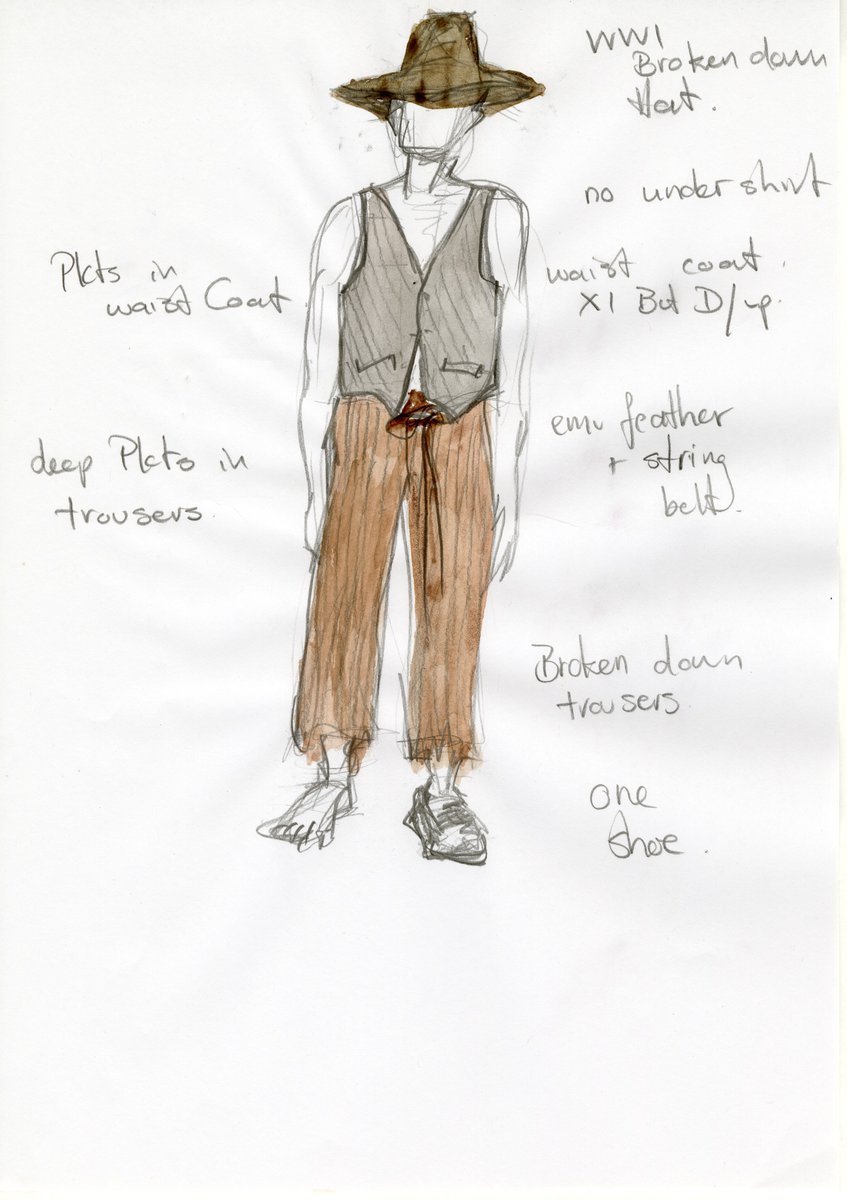 WW1
Broken down
Hat.
no undershirt
Pkts in
waist Coat
waist coat.
X1 But D/up.
emu feather
+ string
belt.
deep Pkts in
trousers.
Broken down
trousers.
one
shoe.